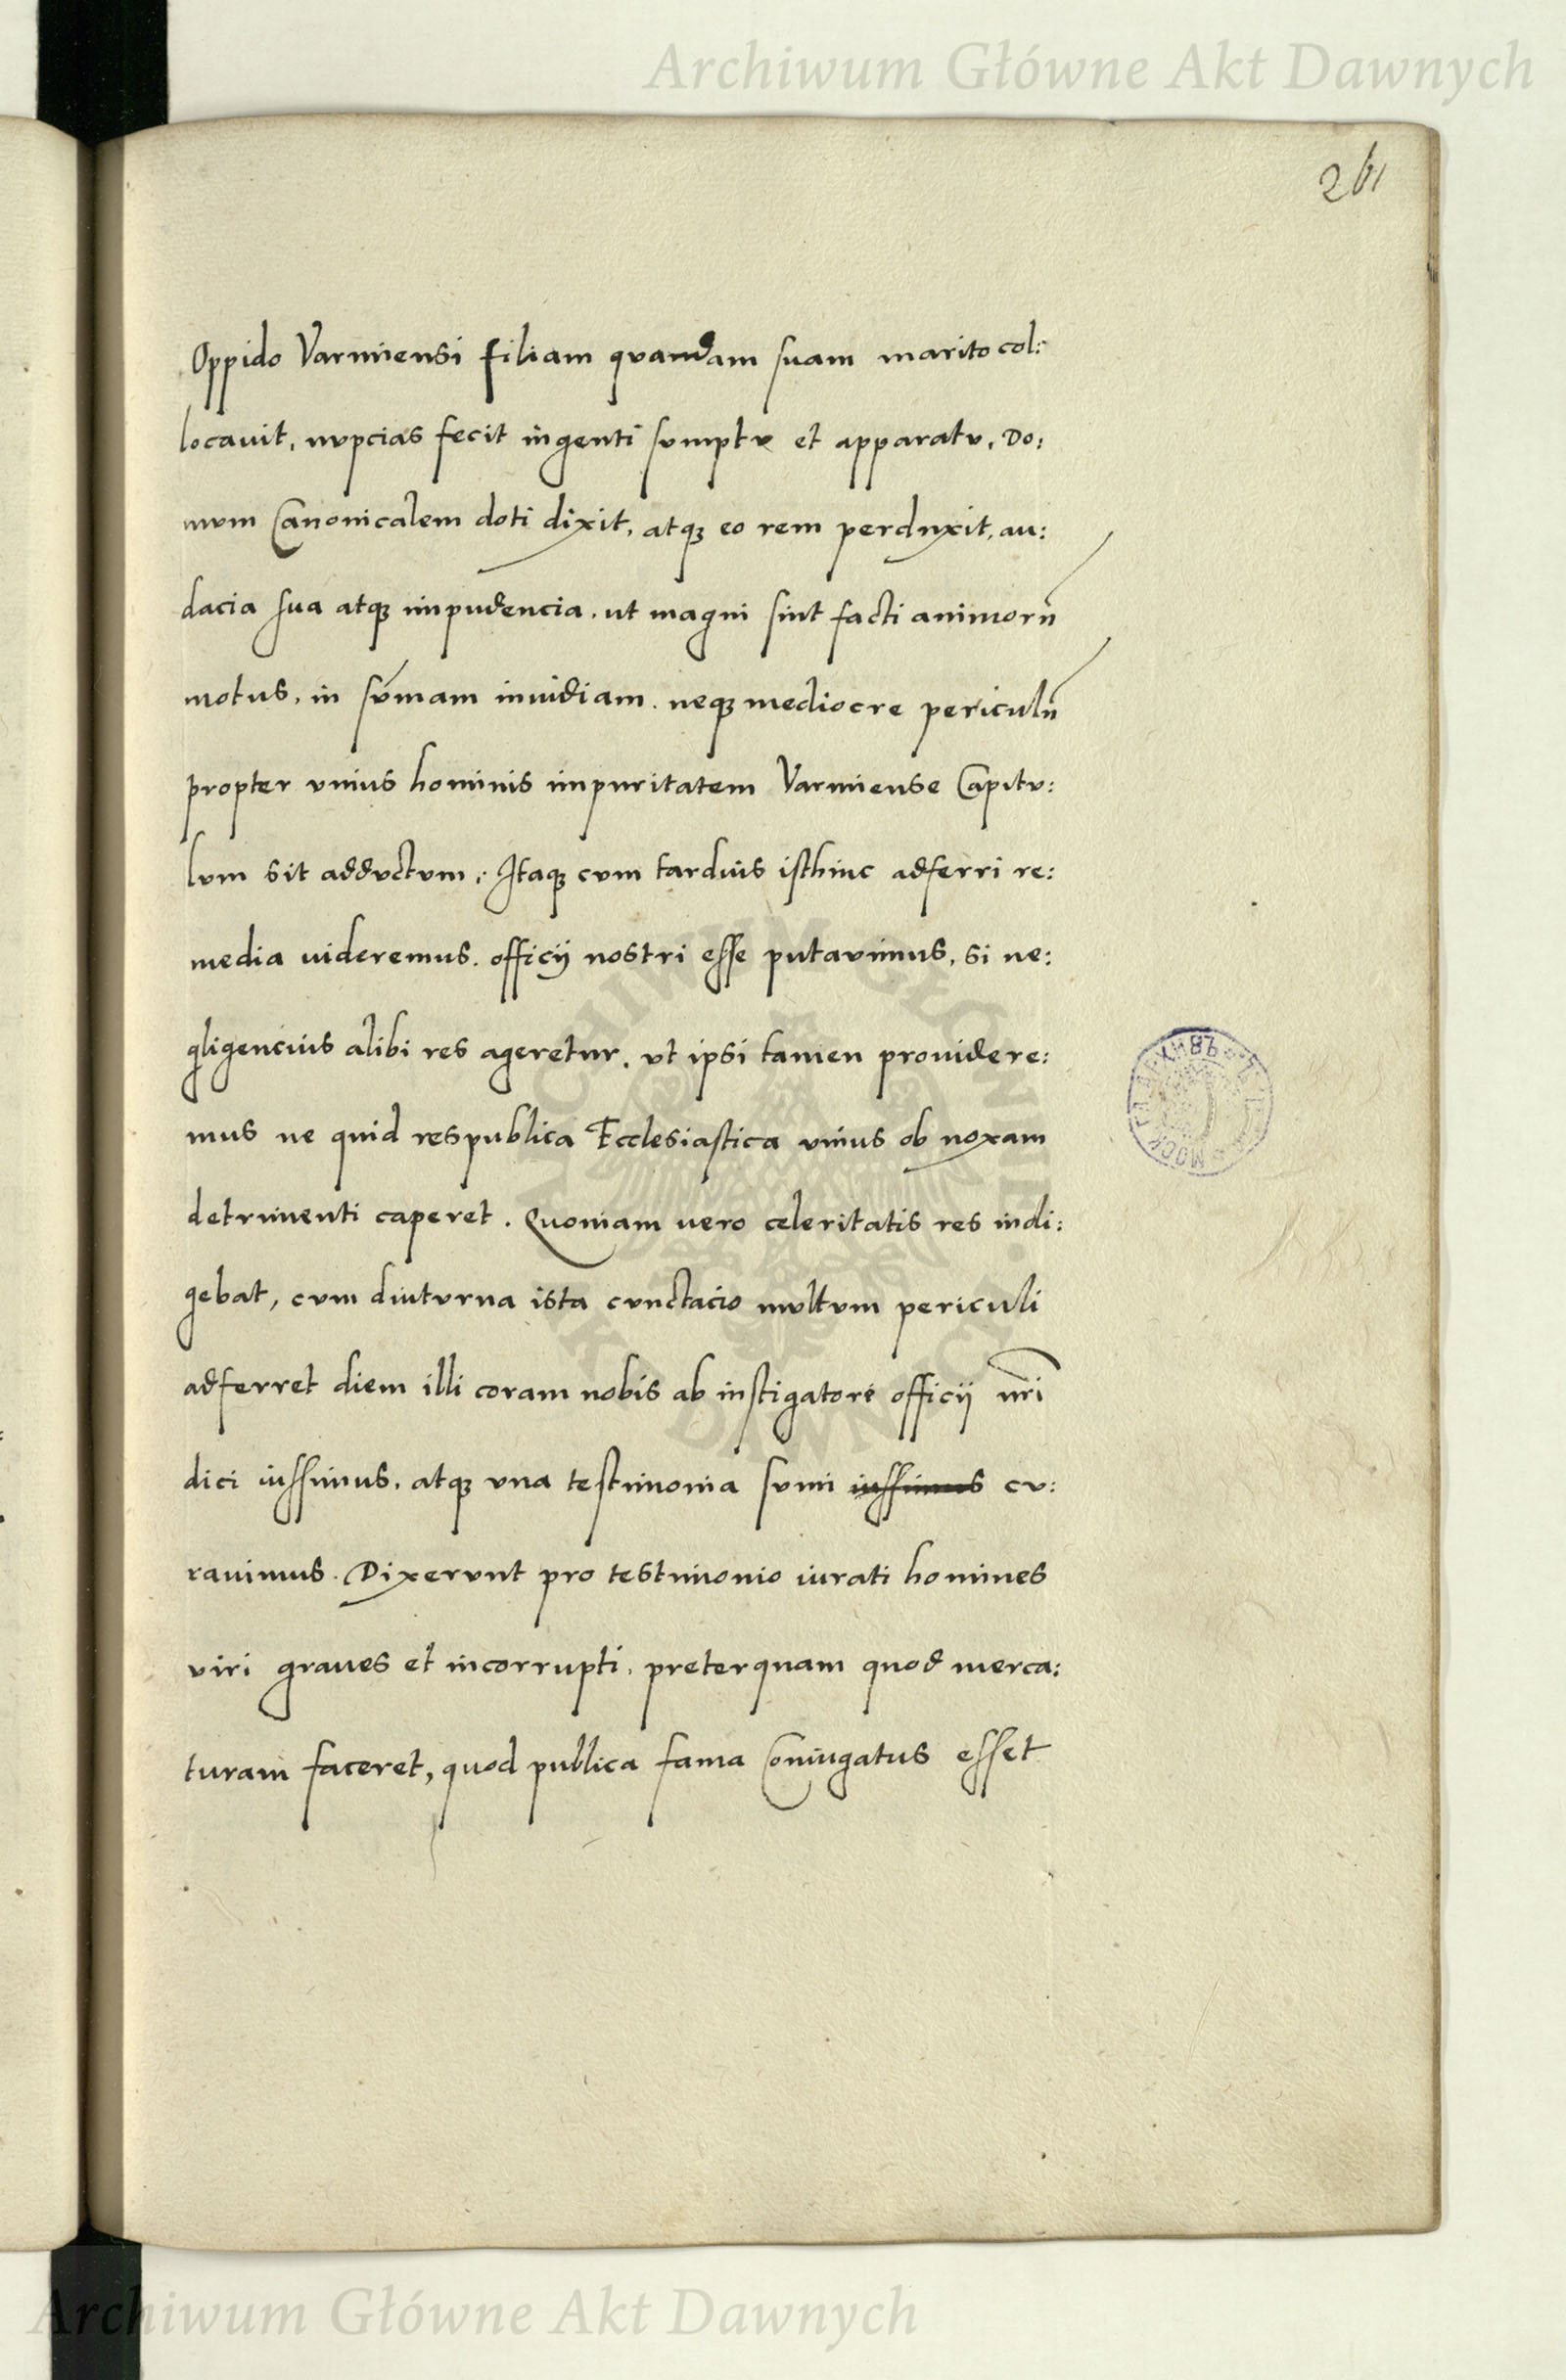 Archiwum Główne Akt Dawnych
261
Oppido Varmiensi filiam quandam suam marito col:
locauit, nvpcias fecit ingenti svmptv et apparatv, Do:
mvm Canonicalem doti dixit, atq; eo rem perduxit, au:
dacia sua atq; impudencia, ut magni sint facti animorū
motus, in sv̄mam inuidiam, neq; mediocre periculū
propter vnius hominis impuritatem Varmiense Capitv:
lvm sit addvctvm: Itaq; cvm tardius isthinc adferri re:
media uideremus, officij nostri esse putavimus, si ne:
gligencius alibi res ageretur, vt ipsi tamen prouidere:
mus ne quid respublica Ecclesiastica vnius ob noxam
detrimenti caperet. Qvoniam uero celeritatis res indi:
gebat, cvm divtvrna ista cvnctacio mvltvm periculi
adferret diem illi coram nobis ab instigatore officij nr̄i
dici iussimus, atq; vna testimonia svmi iussimus cv:
rauimus. Dixervnt pro testimonio iurati homines
viri graues et incorrupti, preterquam quod merca:
turam faceret, quod publica fama Coniugatus esset
ARCHIWUM GŁÓWNE AKT DAWNYCH
Archiwum Główne Akt Dawnych